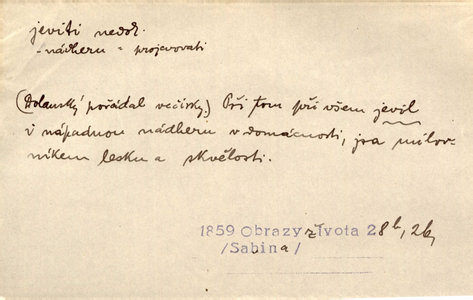 jeviti nedok.
- nádheru = projevovati
(Dolanský pořádal večírky.) Při tom při všem jevil
i nápadnou nádheru v domácnosti, jsa milov-
níkem lesku a skvělosti.
1859 Obrazy života 28b, 2b,
/Sabina/